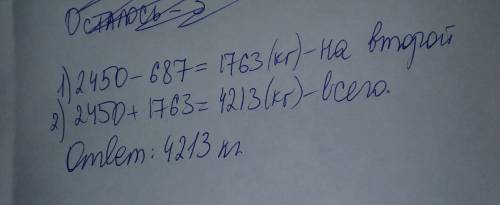 Осталось - ?
1) 2450 - 687 = 1763 (кг) - на второй
2) 2450 + 1763 = 4213 (кг) - всего.
Ответ: 4213 кг.